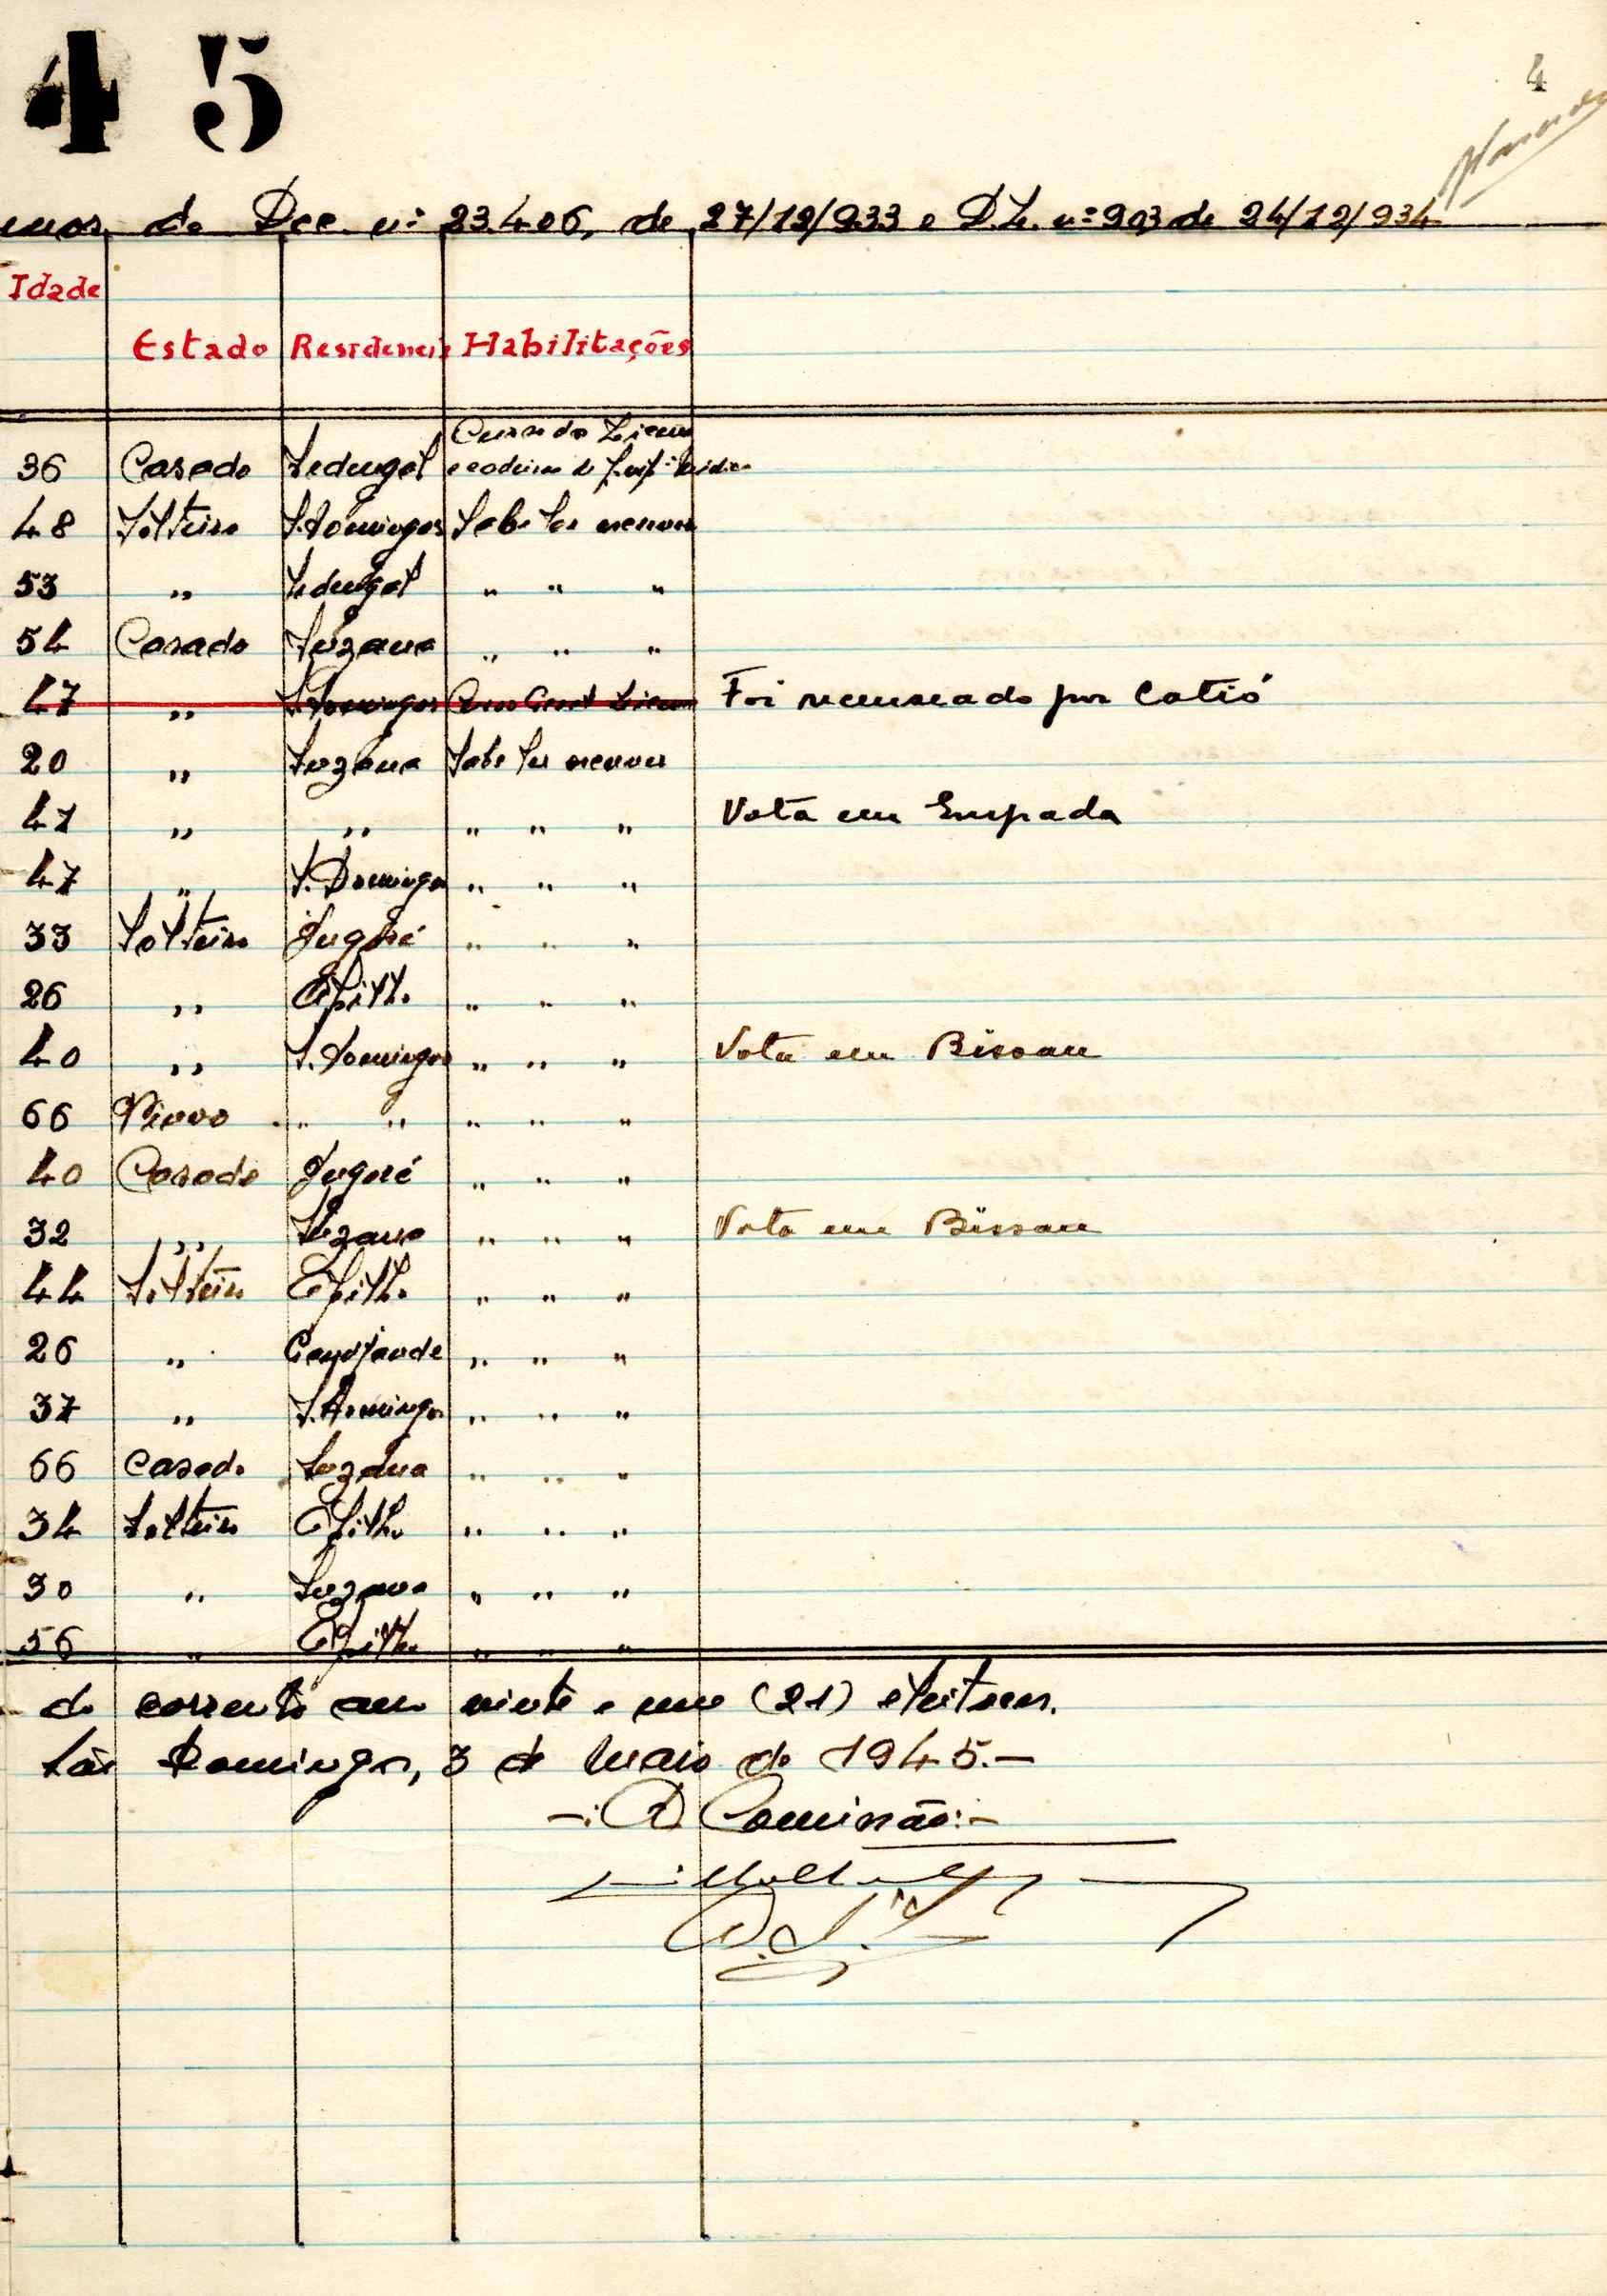 45
4
do Dec. nº 23.406, de 27/12/933 e D.L. nº 903 de 24/12/934
Idade
Estado Residencia Habilitações
Curso do Liceu
36 Casado Sedengal
48 Solteiro S. Domingos Sabe ler escrever
53 " Sedengal " " "
54 Casado Suzana " " "
47 " S. Domingos Curso Geral Liceu Foi recenseado por Catió
20 " Suzana Sabe ler escrever
47 " " " " " Vota em Empada
47 " S. Domingos " " "
33 Solteiro Ingoré " " "
26 " " " "
40 " S. Domingos " " " Vota em Bissau
66 Viuvo " " " " "
40 Casado Ingoré " " "
32 " Suzana " " " Vota em Bissau
44 Solteiro " " "
26 " " " "
37 " S. Domingos " " "
66 Casado Suzana " " "
34 Solteiro " " "
30 " Suzana " " "
56 " " " "
do corrente ano vinte e um (21) eleitores.
São Domingos, 3 de Maio de 1945.—
—:A Comissão:—